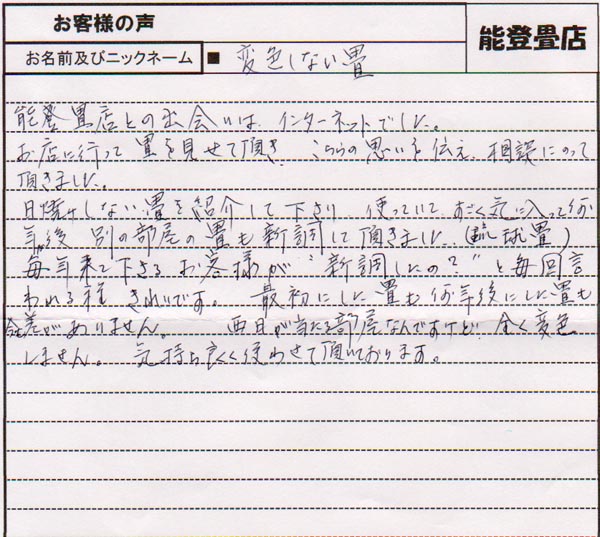 お客様の声
能登畳店
お名前及びニックネーム ■ 変色しない畳
能登畳店との出会いは、インターネットでした。
お店に行って畳を見せて頂き、こちらの思いを伝え、相談にのって
頂きました。
日焼けしない畳を紹介して下さり、使っていて、すごく気に入って何
年か後 別の部屋の畳も新調して頂きました。(琉球畳)
毎年来て下さるお客様が"新調したの?"と毎回言
われる様 きれいです。 最初にした畳も何年後にした畳も
差がありません。 西日が当たる部屋なんですけど 全く変色
しません。 気持ち良く使わせて頂いております。